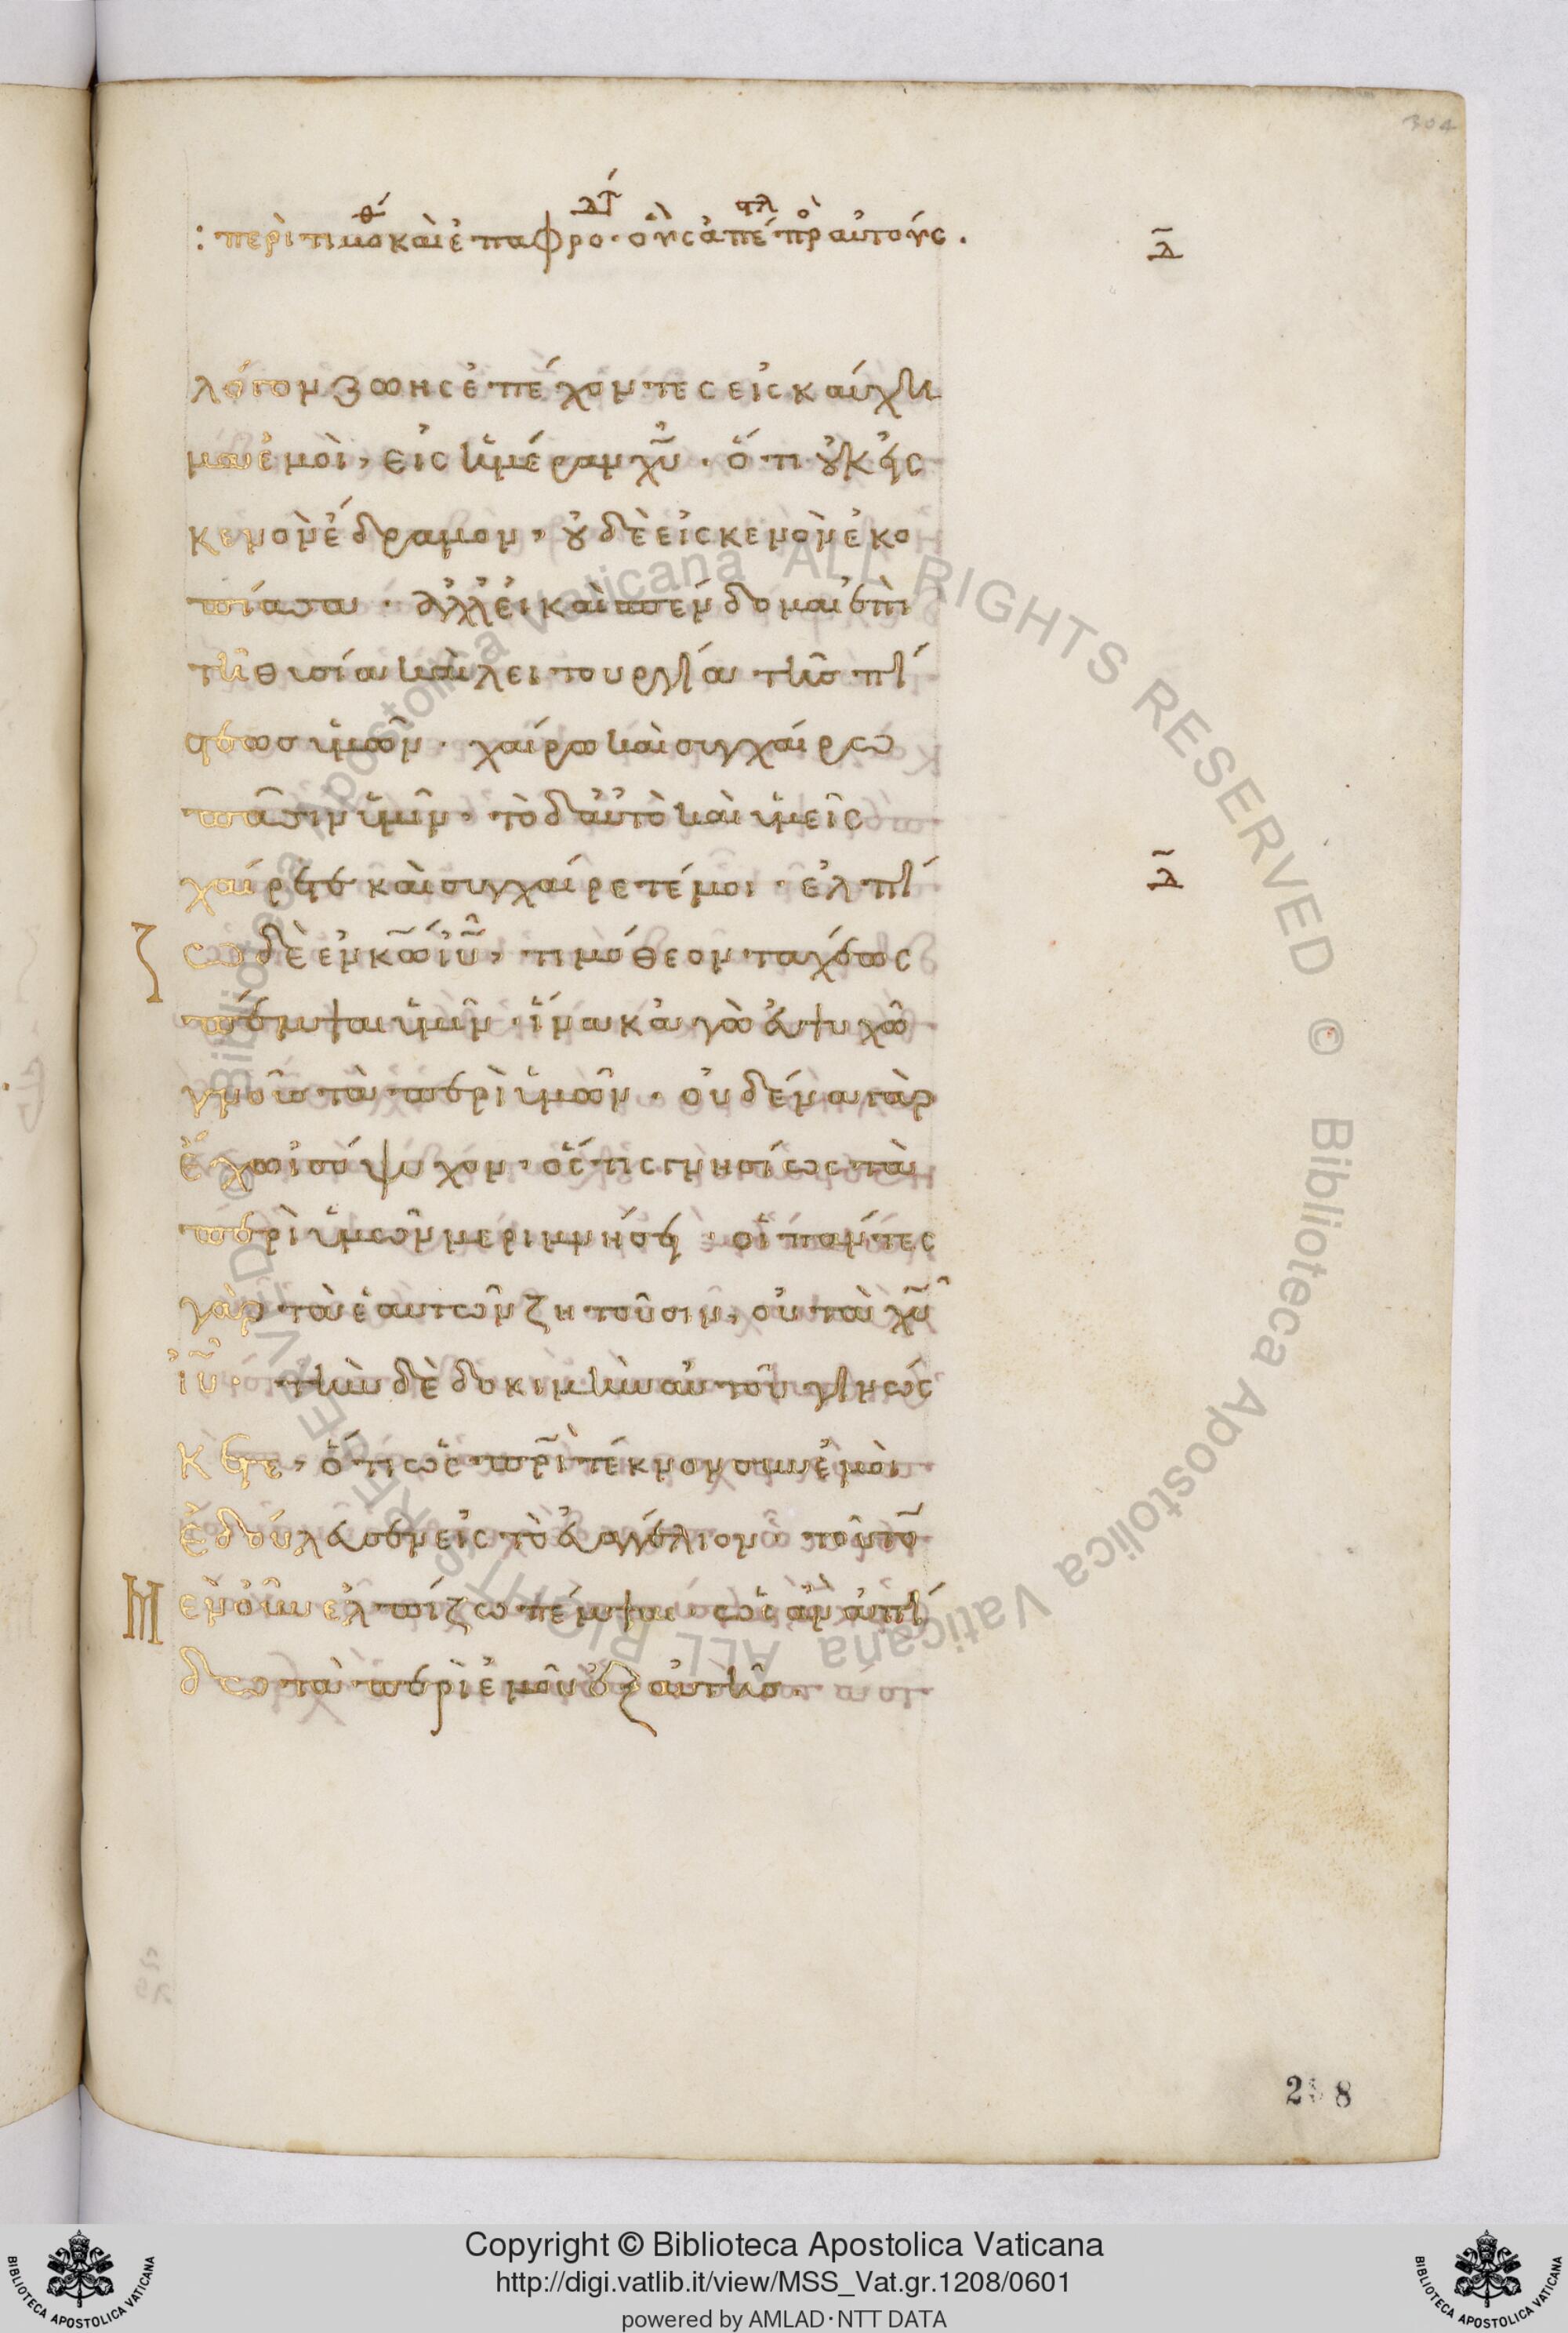 304
: περὶ τιμοθ καὶ ἐπαφροδτ · οὓς ἀπέστλ πρὸ αὐτούς .
δ̄
λόγον ζωῆς ἐπέχοντες εἰς καύχη
μα ἐμοὶ, εἰς ἡμέραν χ̅υ̅ · ὅτι οὐκ εἰς
κενὸν ἔδραμον, οὐδὲ εἰς κενὸν ἐκο
πίασα · ἀλλ' εἰ καὶ σπένδομαι ἐπὶ
τῆ θυσία καὶ λειτουργία τῆς πί
στεως ὑμῶν · χαίρω καὶ συγχαίρω
πᾶσιν ὑμῖν · τὸ δ' αὐτὸ καὶ ὑμεῖς
χαίρετε καὶ συγχαίρετέ μοι · ἐλπί
δ̄
ζω δὲ ἐν κ̅ω̅ ἰ̅υ̅, τιμόθεον ταχέως
πέμψαι ὑμῖν · ἵνα κἀγὼ εὐψυχῶ
γνοὺς τὰ περὶ ὑμῶν · οὐδένα γὰρ
ἔχω ἰσόψυχον · ὅς τις γνησίως τὰ
περὶ ὑμῶν μεριμνήσει · οἱ πάντες
γὰρ τὰ ἑαυτῶν ζητοῦσιν, οὐ τὰ χ̅υ̅
ἰ̅υ̅ · τὴν δὲ δοκιμὴν αὐτοῦ γινώς
κετε, ὅτι ὡς π̅ρ̅ι̅ τέκνον σὺν ἐμοὶ
ἐδούλευσεν εἰς τὸ εὐαγγέλιον · τοῦτο
Μ
ὲν οὖν ἐλπίζω πέμψαι · ὡς ἂν ἀπί
δω τὰ περὶ ἐμοῦ ἐξαυτῆς ·
2 8
Copyright © Biblioteca Apostolica Vaticana
http://digi.vatlib.it/view/MSS_Vat.gr.1208/0601
powered by AMLAD·NTT DATA
BIBLIOTECA APOSTOLICA VATICANA
BIBLIOTECA APOSTOLICA VATICANA
© Biblioteca Apostolica Vaticana ALL RIGHTS RESERVED © Biblioteca Apostolica Vaticana ALL RIGHTS RESERVED